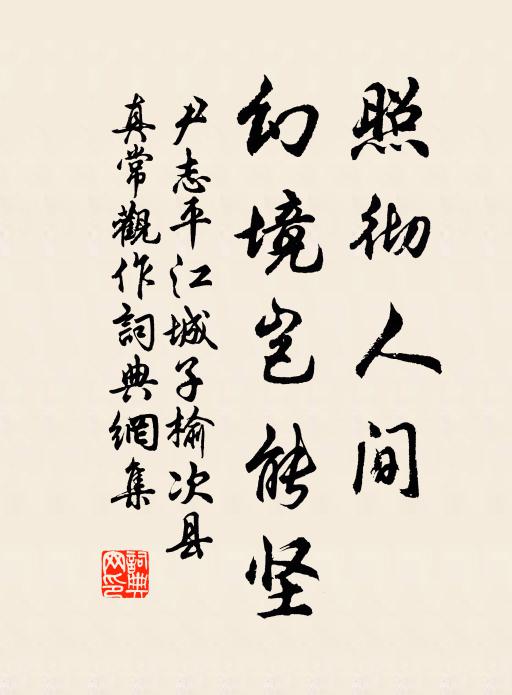 照彻人间
幻境岂能坚
尹志平江城子榆次县
真常觀作詞典網集
詞典網印